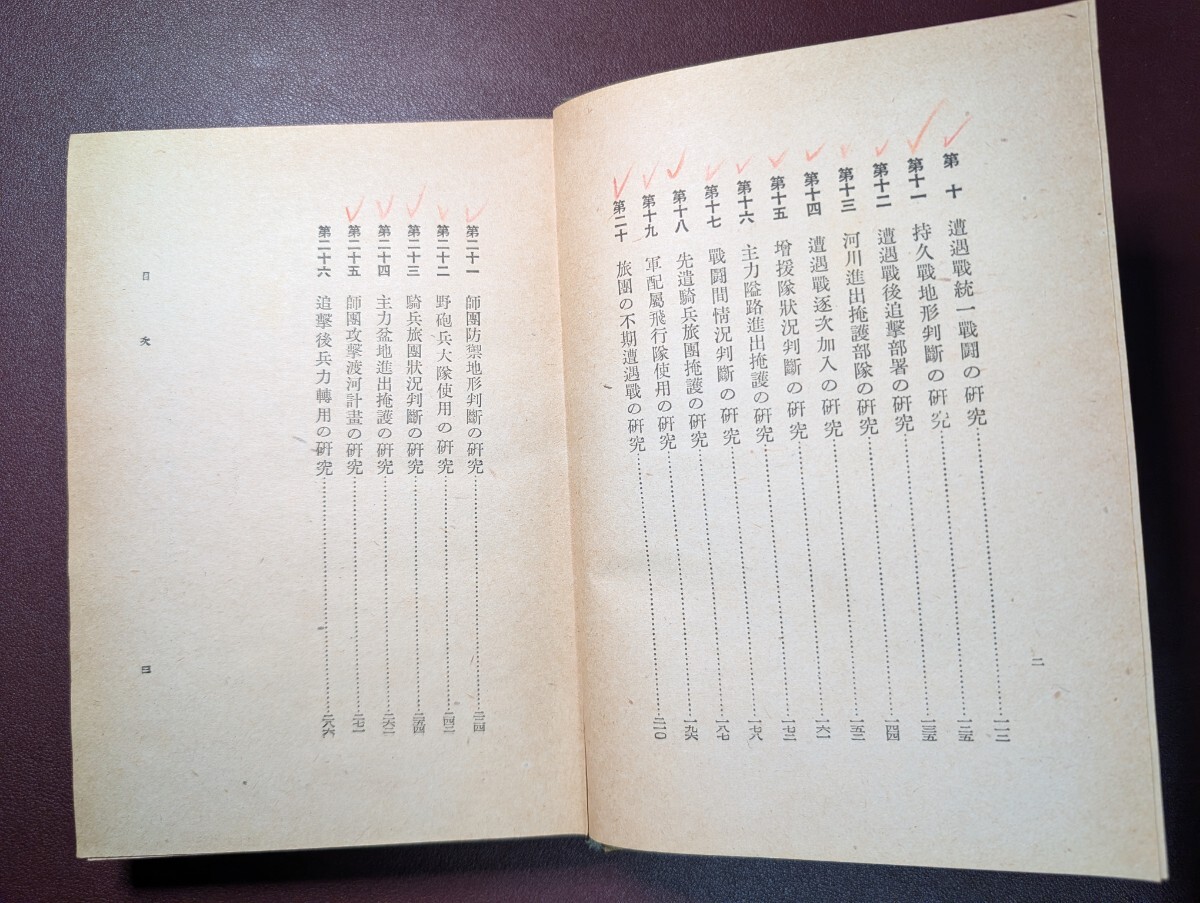 二
第十 遭遇戰統一戰鬪の硏究……一一二
第十一 持久戰地形判斷の硏究……一二五
第十二 遭遇戰後追擊部署の硏究……一三五
第十三 河川進出掩護部隊の硏究……一四四
第十四 遭遇戰逐次加入の硏究……一五二
第十五 增援隊狀況判斷の硏究……一六一
第十六 主力隘路進出掩護の硏究……一七二
第十七 戰鬪間情況判斷の硏究……一七八
第十八 先遣騎兵旅團掩護の硏究……一八七
第十九 軍配屬飛行隊使用の硏究……一九六
第二十 旅團の不期遭遇戰の硏究……二一〇
第二十一 師團防禦地形判斷の硏究……二三四
第二十二 野砲兵大隊使用の硏究……二四二
第二十三 騎兵旅團狀況判斷の硏究……二五四
第二十四 主力盆地進出掩護の硏究……二六二
第二十五 師團攻擊渡河計畫の硏究……二七一
第二十六 追擊後兵力轉用の硏究……二八六
目次 三